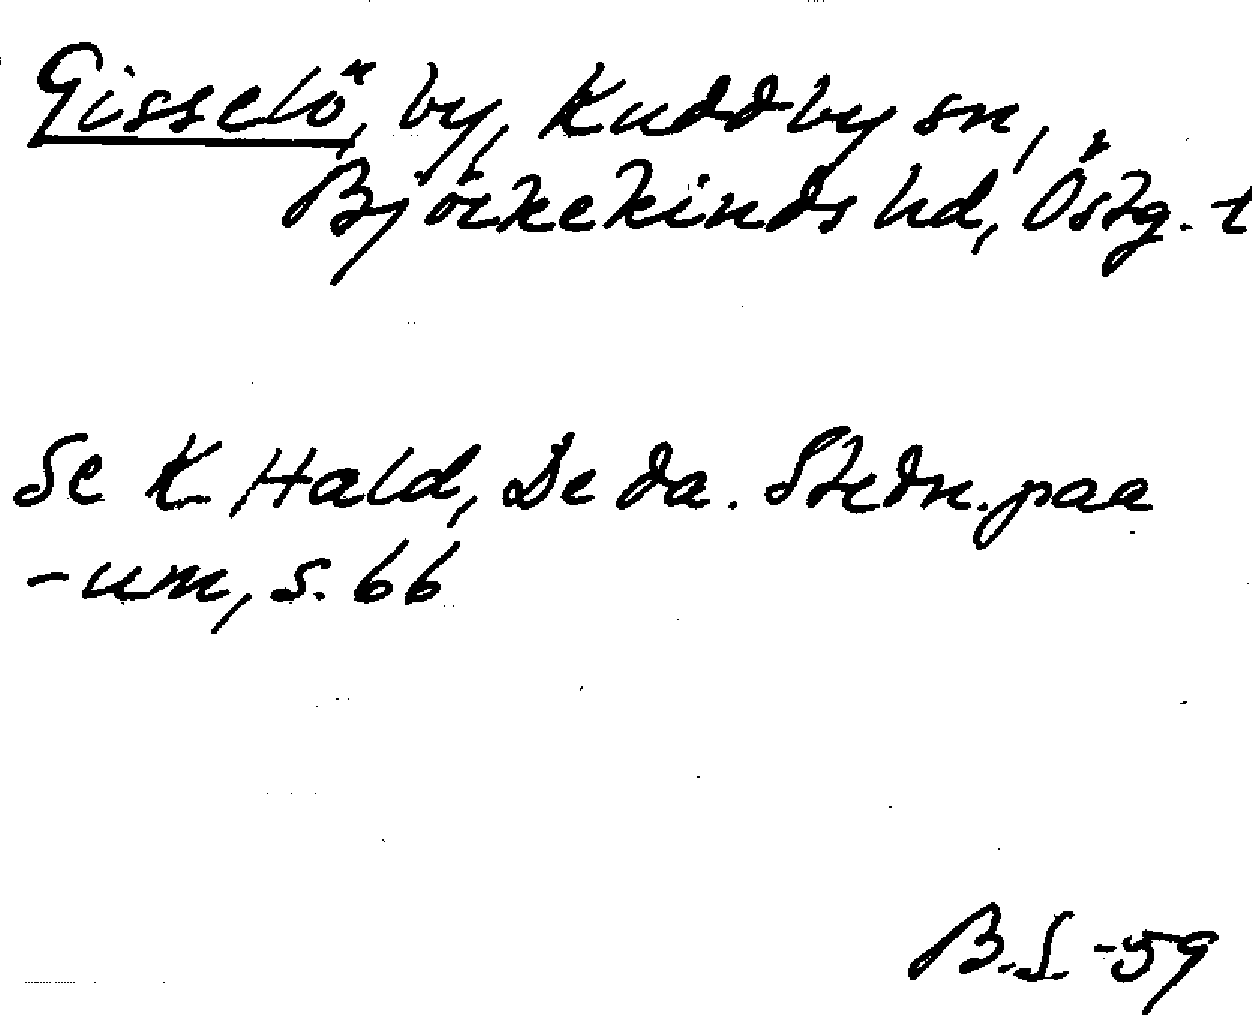 Gisselö, by, Kuddby sn,
Björkekinds hd, Östg. t
Se K. Hald, De da. Stedn. paa
-um, s. 66
B.S. -59